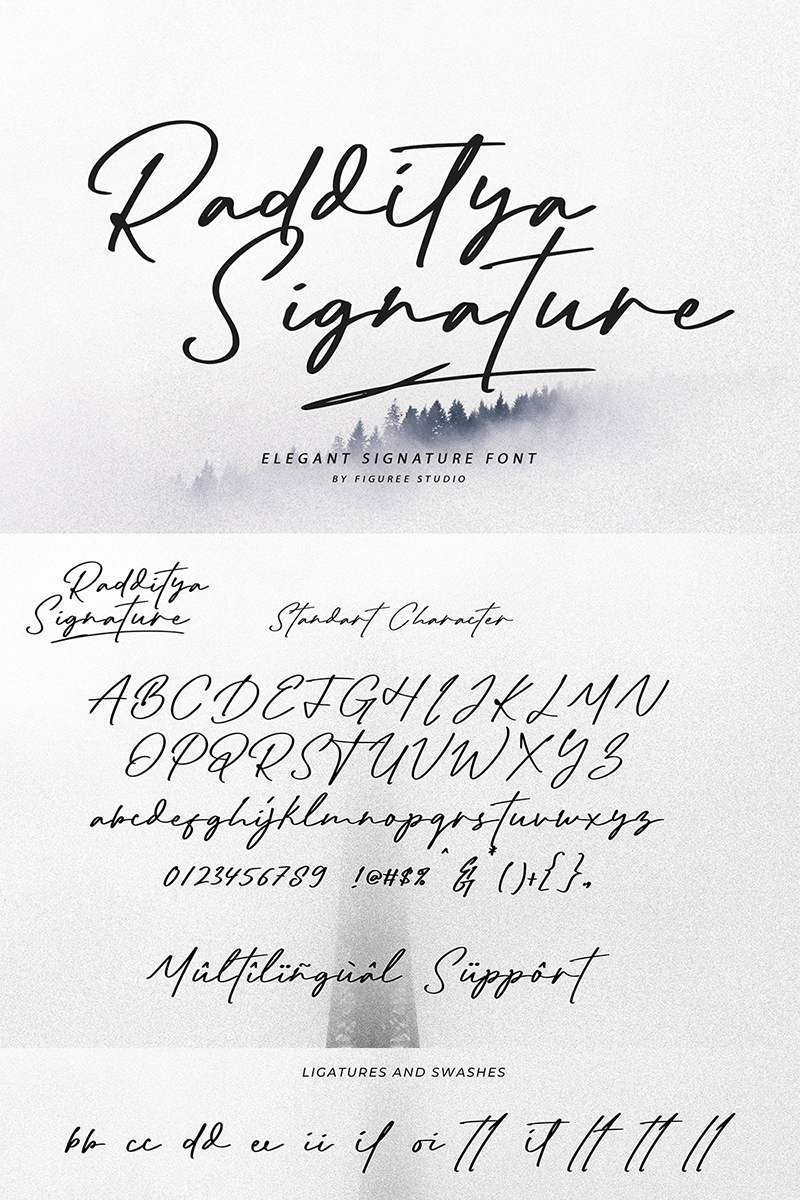 Radditya
Signature
ELEGANT SIGNATURE FONT
BY FIGUREE STUDIO
Radditya
Signature
Standart Character
ABCDEFGHIJKLMN
OPQRSTUVWXYZ
abcdefghijklmnopqrstuvwxyz
0123456789 !@#$%^&*()+{},,
Mûltîlïñgùâl Süppôrt
LIGATURES AND SWASHES
bb cc dd ee ii il oi tt it lt tt ll